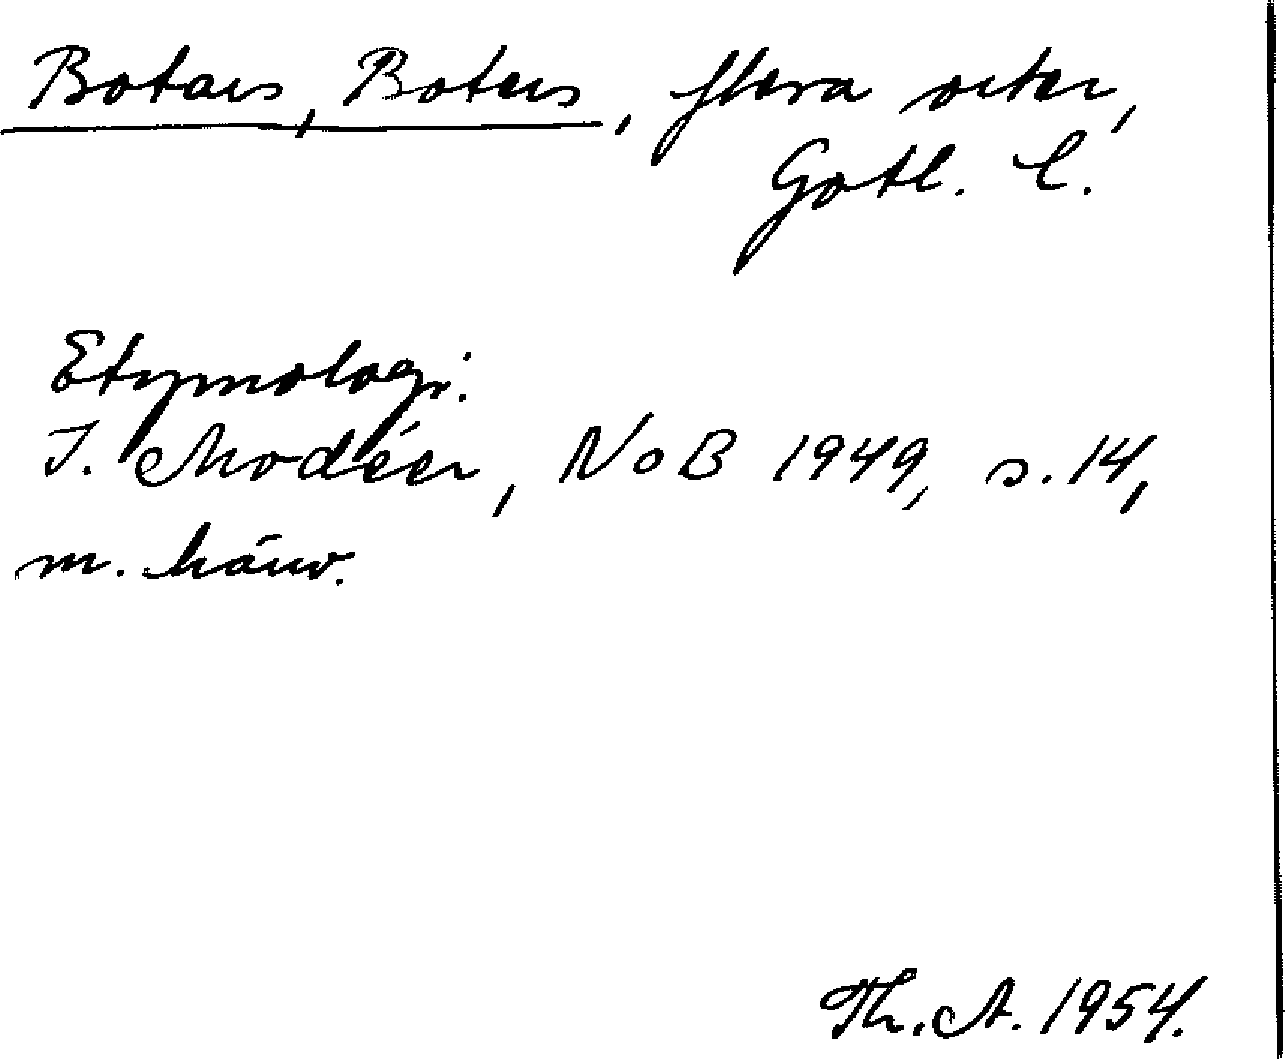 Botars, Boters, flera orter,
Gotl. l.
Etymologi:
I. Modéer, NoB 1949, s. 14,
m. hänv.
Th. A. 1954.